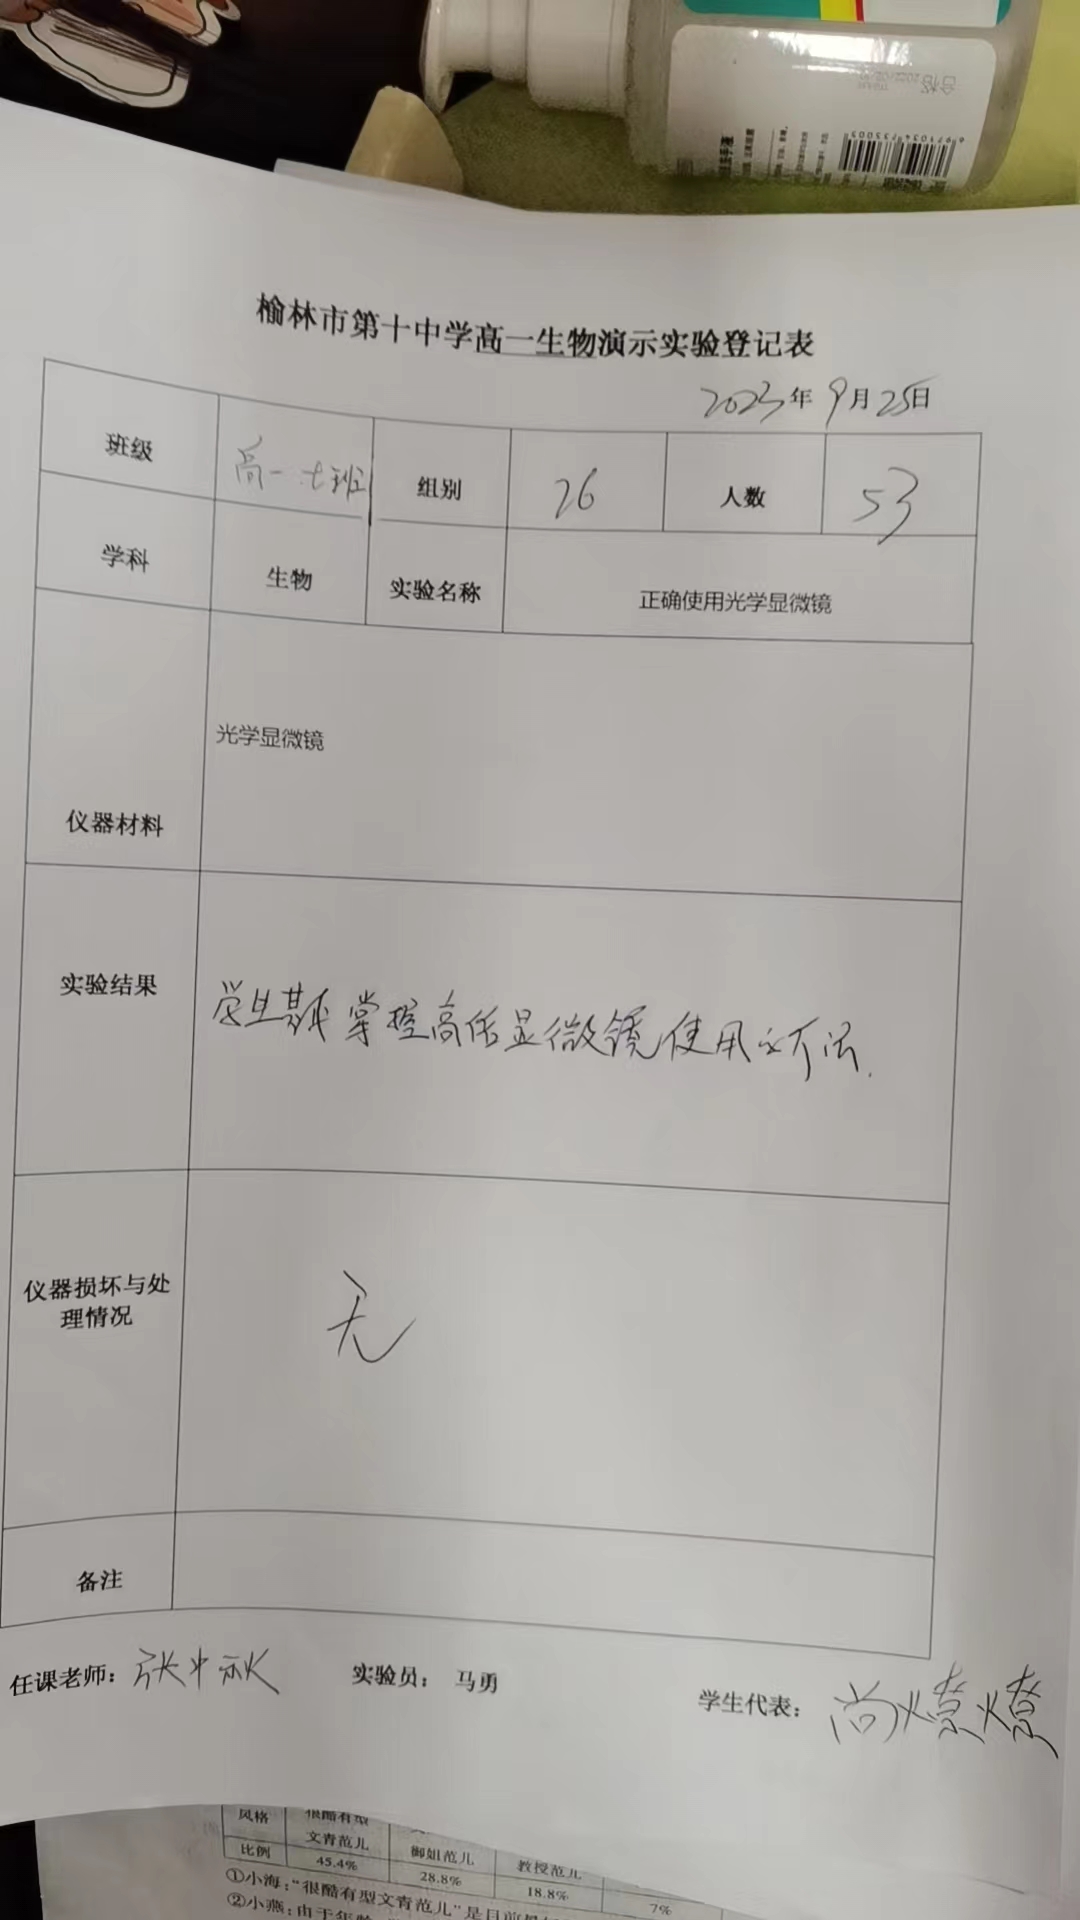 合格
6971034733005
榆林市第十中学高一生物演示实验登记表
2023年9月25日
班级 高一.七班 组别 26 人数 53
学科 生物 实验名称 正确使用光学显微镜
仪器材料 光学显微镜
实验结果 学生基本掌握高倍显微镜使用的方法.
仪器损坏与处
理情况 无
备注
任课老师: 张中秋 实验员: 马勇 学生代表: 尚燎燎
风格 很酷有型
文青范儿 御姐范儿 教授范儿
比例 45.4% 28.8% 18.8% 7%
①小海:“很酷有型文青范儿”是目前
②小燕:由于年龄